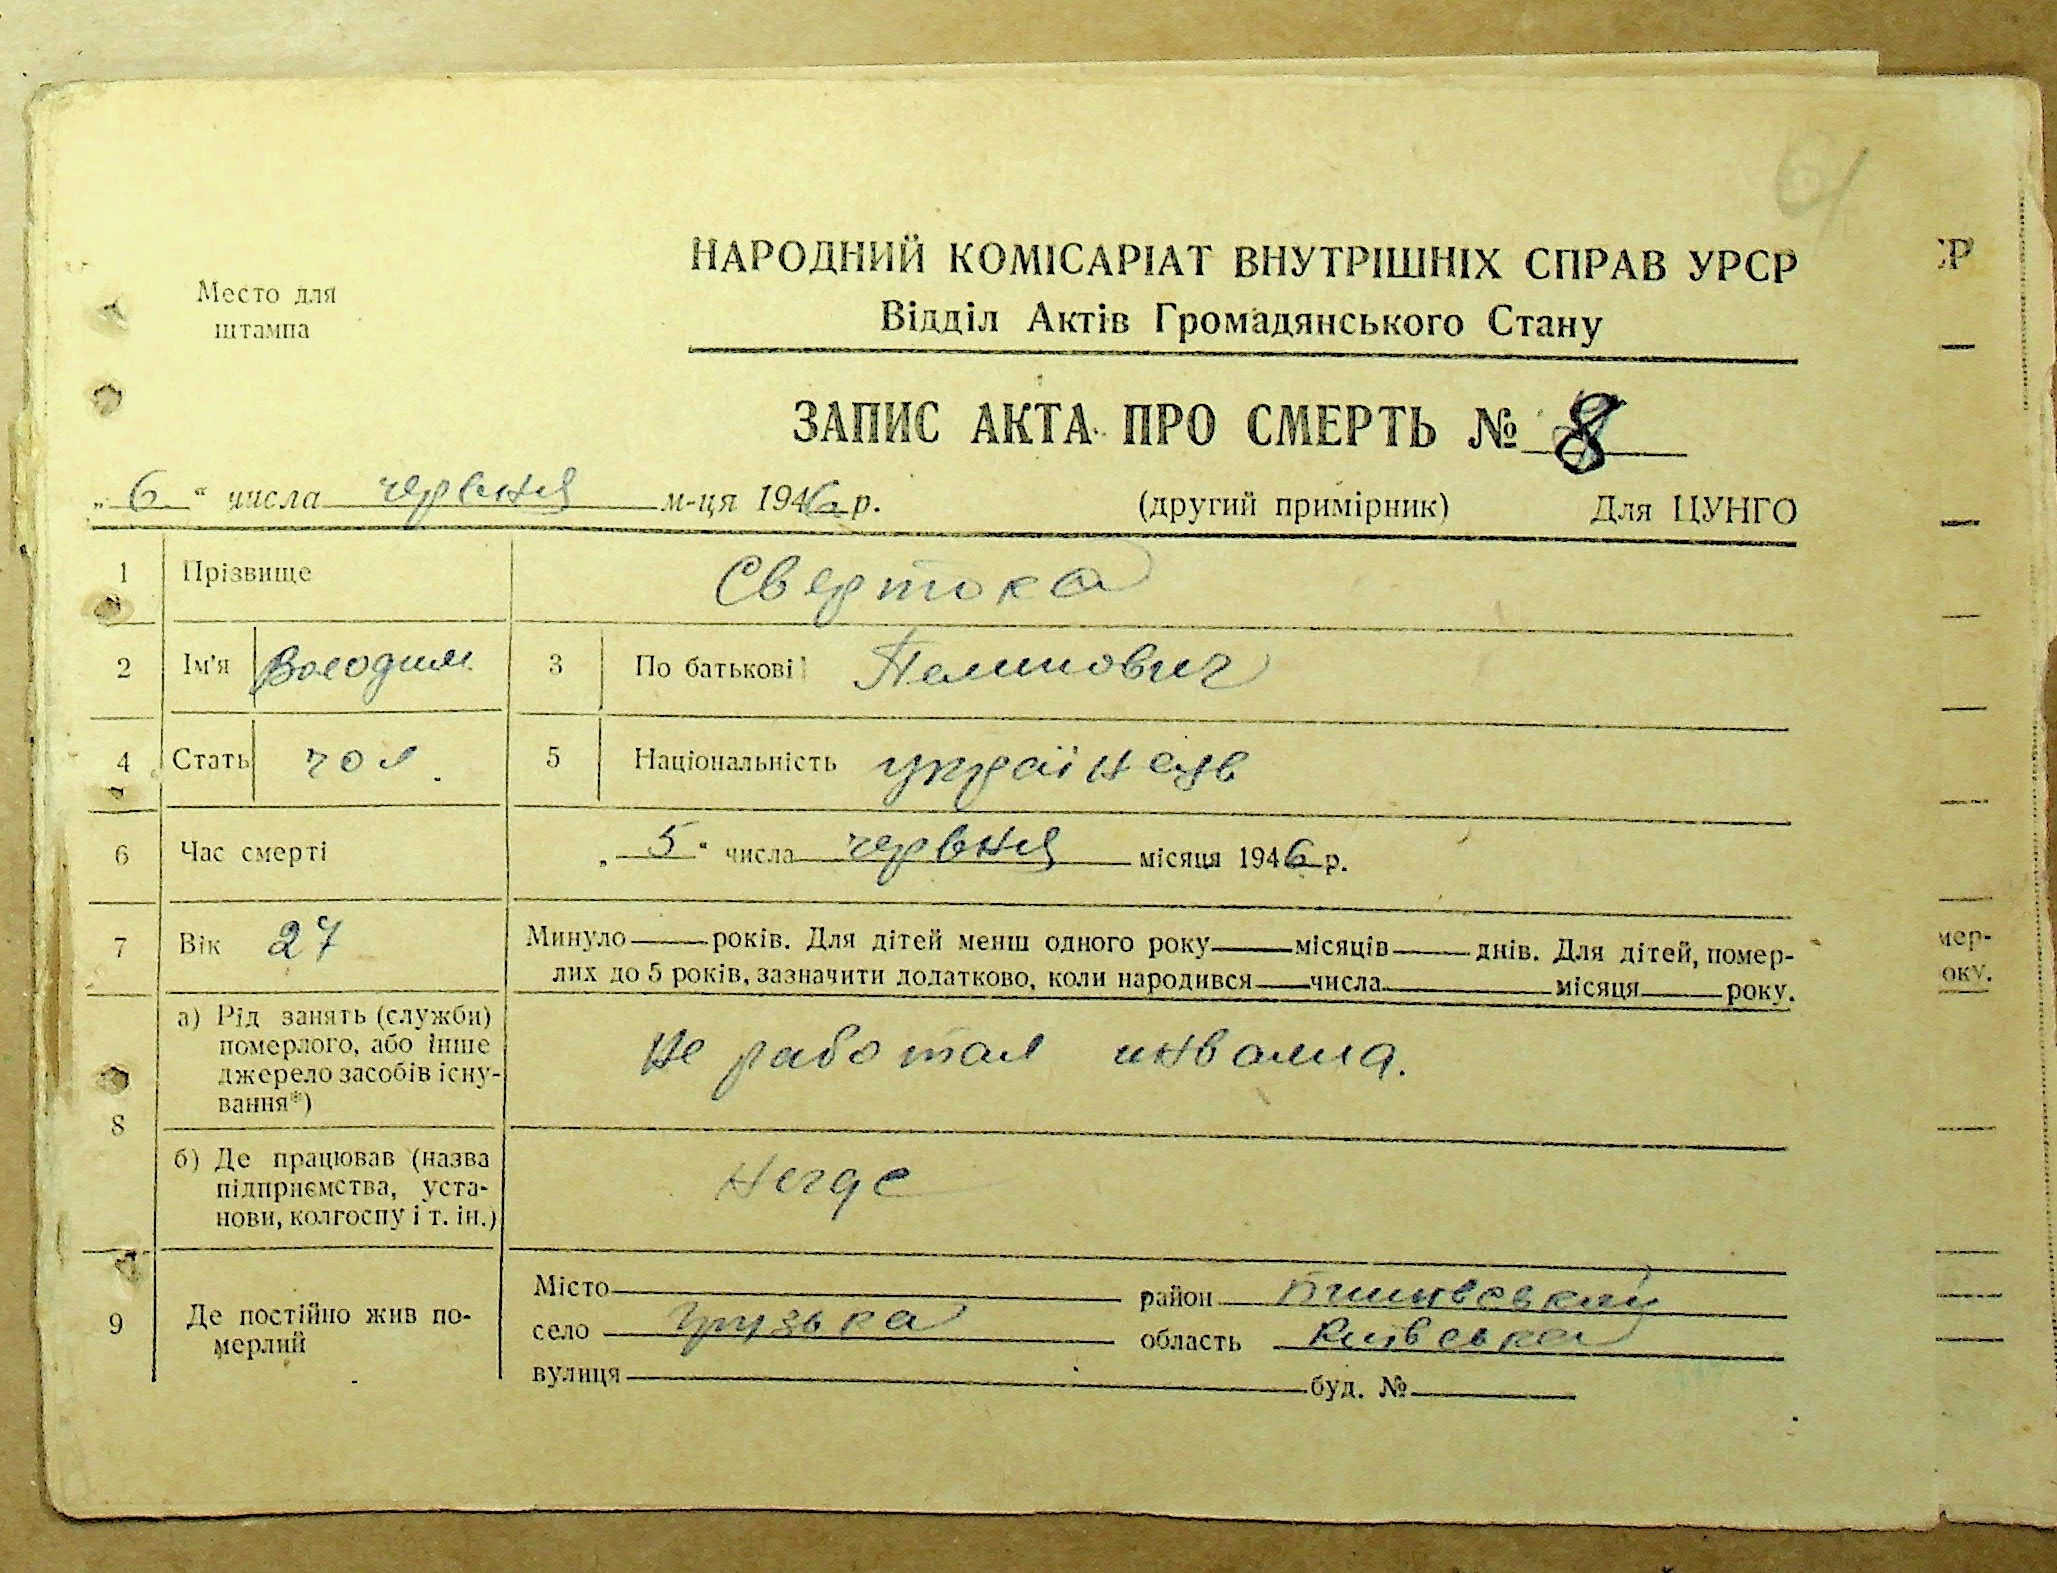 6
Место для
штампа
НАРОДНИЙ КОМІСАРІАТ ВНУТРІШНІХ СПРАВ УРСР
Відділ Актів Громадянського Стану
ЗАПИС АКТА ПРО СМЕРТЬ № 8
„ 6 “ числа червня м-ця 1946 р. (другий примірник) Для ЦУНГО
1 Прізвище Свертока
2 Ім'я Володим 3 По батькові
4 Стать чол. 5 Національність українець
6 Час смерті „ 5 “ числа червня місяця 1946 р.
7 Вік 27 Минуло — років. Для дітей менш одного року — місяців — днів. Для дітей, помер-
лих до 5 років, зазначити додатково, коли народився — числа — місяця — року.
8 а) Рід занять (служби)
померлого, або інше
джерело засобів існу-
вання*)
Не работал инвалид.
б) Де працював (назва
підприємства, уста-
нови, колгоспу і т. ін.)
Негде
9 Де постійно жив по-
мерлий
Місто район
село Грузька область Київська
вулиця буд. №
СР
мер-
оку.